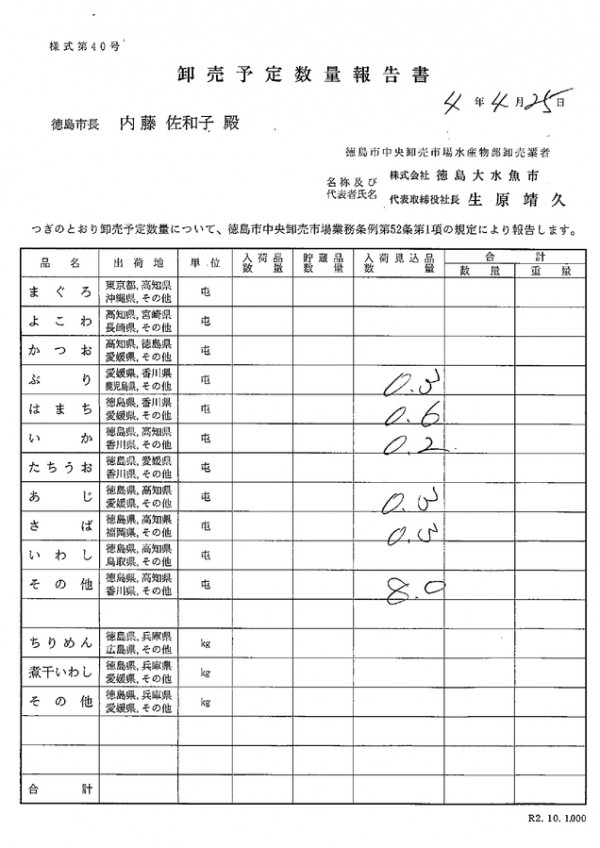 様式第40号
卸売予定数量報告書
4年4月25日
徳島市長 内藤 佐和子 殿
徳島市中央卸売市場水産物部卸売業者
名称及び 株式会社 徳島大水魚市
代表者氏名 代表取締役社長 生原靖久
つぎのとおり卸売予定数量について、徳島市中央卸売市場業務条例第52条第1項の規定により報告します。
品名 出荷地 単位 入荷品数量 貯蔵品数量 入荷見込品数量 合計
数量 重量
まぐろ 東京都,高知県 沖縄県,その他 屯
よこわ 高知県,宮崎県 長崎県,その他 屯
かつお 高知県,徳島県 愛媛県,その他 屯
ぶり 愛媛県,香川県 鹿児島県,その他 屯 0.3
はまち 徳島県,香川県 愛媛県,その他 屯 0.6
いか 徳島県,高知県 香川県,その他 屯 0.2
たちうお 徳島県,愛媛県 香川県,その他 屯
あじ 徳島県,高知県 愛媛県,その他 屯 0.3
さば 徳島県,高知県 福岡県,その他 屯 0.3
いわし 徳島県,高知県 鳥取県,その他 屯
その他 徳島県,高知県 香川県,その他 屯 8.0
ちりめん 徳島県,兵庫県 広島県,その他 kg
煮干いわし 徳島県,兵庫県 愛媛県,その他 kg
その他 徳島県,兵庫県 愛媛県,その他 kg
合計
R2.10.1,000